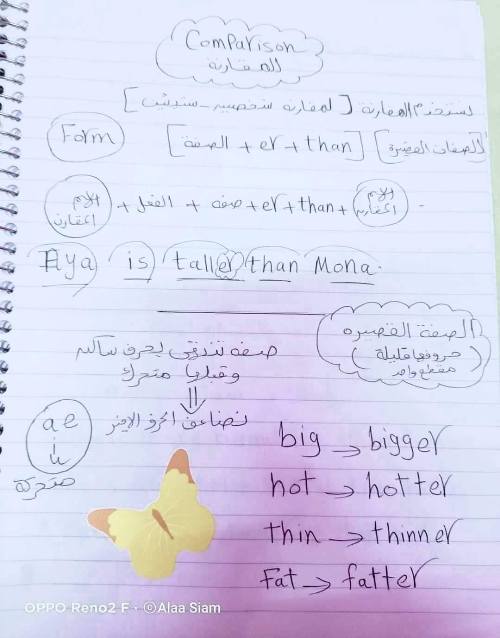 Comparison
المقارنة
نستخدم المقارنة [لمقارنه شخصيين - شيئين]
Form [الصفة + er + than] [الصفات القصيرة]
الاسم المقارن + الفعل + صفه + er + than + الاسم المقارن
Aya is taller than Mona.
الصفة القصيره
(حروفها قليلة
مقطع واحد)
صفه تنتهى بحرف ساكن
وقبلها متحرك
نضاعف الحرف الاخير
a e
i u
متحركة
big → bigger
hot → hotter
thin → thinner
Fat → fatter
OPPO Reno2 F · ©Alaa Siam